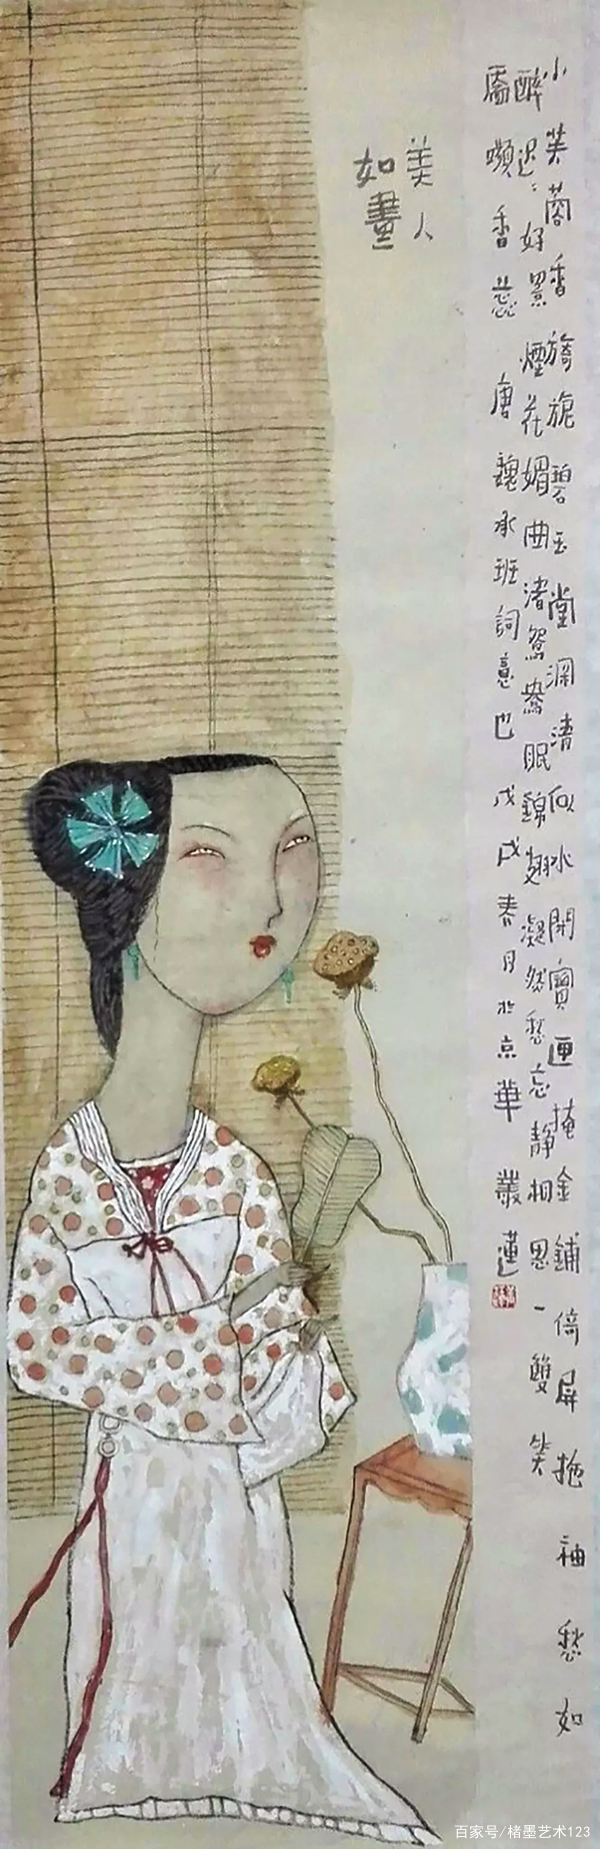 小芙蓉香旖旎碧玉堂深清似水開寶匣掩金鋪倚屏拖袖愁如
醉遲々好景煙花媚曲渚鴛鴦眠錦翅凝然愁忘靜相思一雙笑
靨嚬香蕊 唐魏承班詞意也戊戌春月於京華叢蓮
美人
如畫
百家号/楮墨艺术123